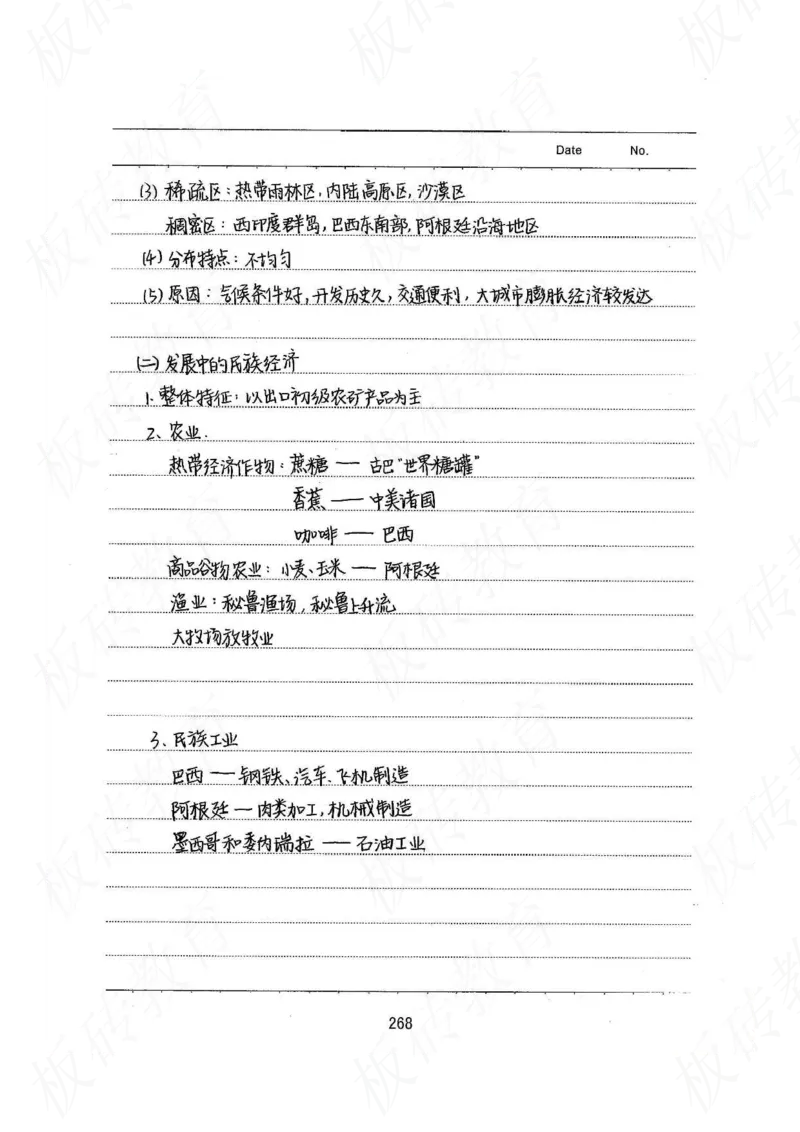 Date No.
(3) 稀疏区：热带雨林区，内陆高原区，沙漠区
稠密区：西印度群岛，巴西东南部，阿根廷沿海地区
(4) 分布特点：不均匀
(5) 原因：气候条件好，开发历史久，交通便利，大城市膨胀经济较发达
(二) 发展中的民族经济
1. 整体特征：以出口初级农矿产品为主
2、农业.
热带经济作物：蔗糖 —— 古巴“世界糖罐”
香蕉 —— 中美诸国
咖啡 —— 巴西
商品谷物农业：小麦、玉米 —— 阿根廷
渔业：秘鲁渔场，秘鲁上升流
大牧场放牧业
3、民族工业
巴西 —— 钢铁、汽车、飞机制造
阿根廷 — 肉类加工，机械制造
墨西哥和委内瑞拉 —— 石油工业
268
板砖教育